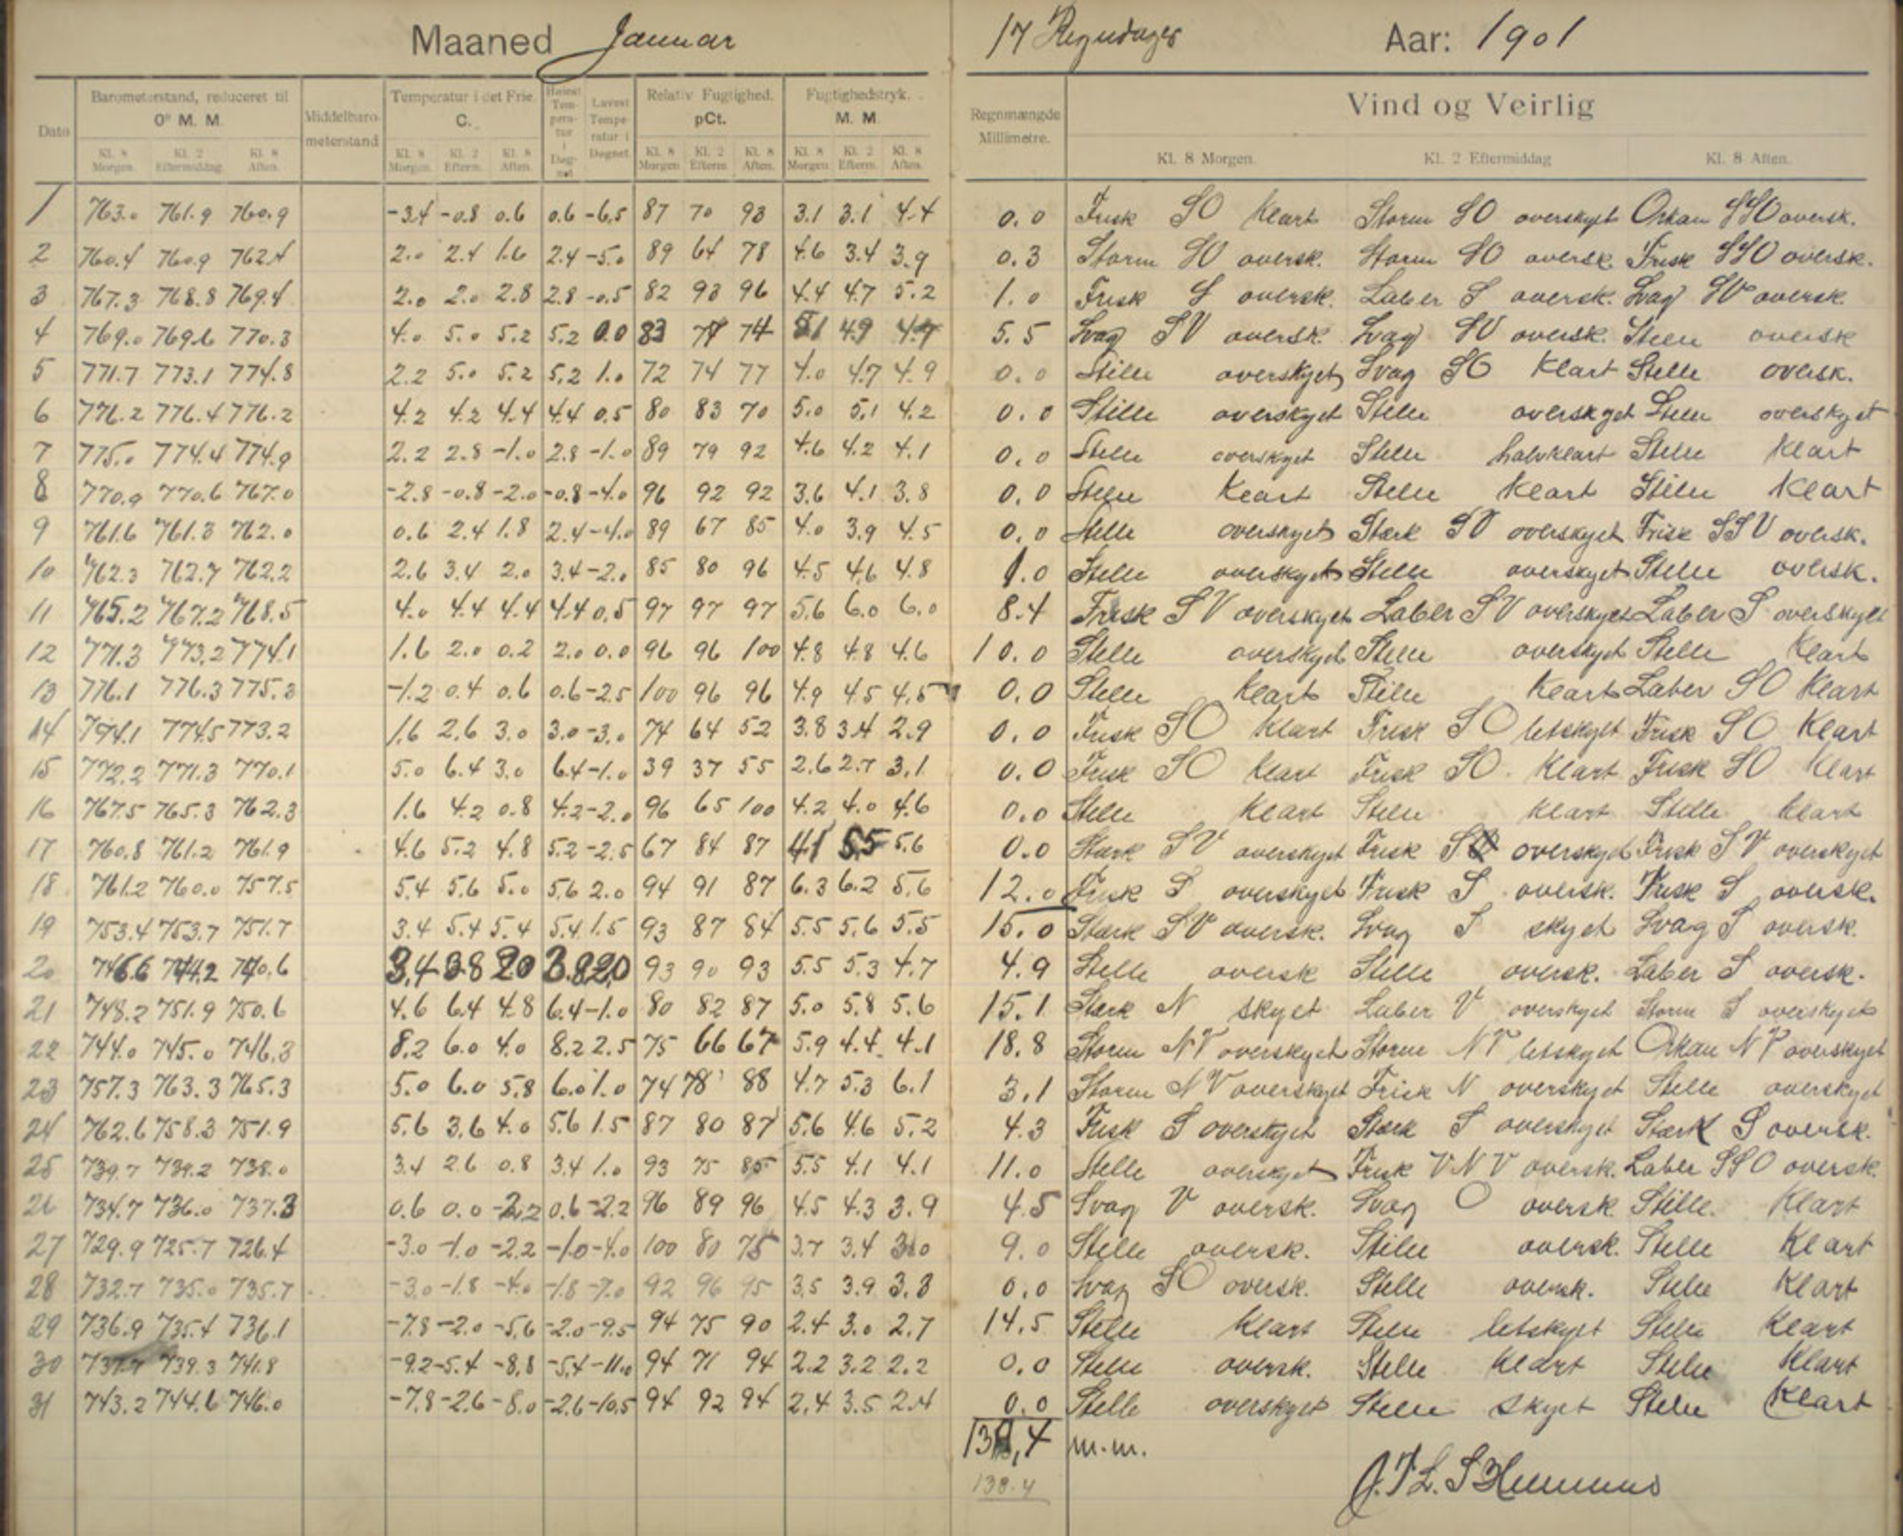 Maaned Januar 17 Regndager Aar: 1901
Dato Barometerstand, reduceret til 0° M. M. Middelbaro-meterstand Temperatur i det Frie. C. Høiest Tem-pera-tur i Døg-net Lavest Tempe-ratur i Døgnet. Relativ Fugtighed. pCt. Fugtighedstryk. M. M. Regnmængde Millimetre. Vind og Veirlig
Kl. 8 Morgen. Kl. 2 Eftermiddag. Kl. 8 Aften. Kl. 8 Morgen. Kl. 2 Efterm. Kl. 8 Aften. Kl. 8 Morgen. Kl. 2 Efterm. Kl. 8 Aften. Kl. 8 Morgen. Kl. 2 Efterm. Kl. 8 Aften. Kl. 8 Morgen. Kl. 2 Eftermiddag Kl. 8 Aften.
1 763.0 761.9 760.9 -3.4 -0.8 0.6 0.6 -6.5 87 70 93 3.1 3.1 4.4 0.0 Frisk SO klart Storm SO overskyet Orkan SSO oversk.
2 760.4 760.9 762.4 2.0 2.4 1.6 2.4 -5.0 89 64 78 4.6 3.4 3.9 0.3 Storm SO oversk. Storm SO oversk. Frisk SSO oversk.
3 767.3 768.8 769.4 2.0 2.0 2.8 2.8 -0.5 82 93 96 4.4 4.7 5.2 1.0 Frisk S oversk. Laber S oversk. Svag SV oversk.
4 769.0 769.6 770.3 4.0 5.0 5.2 5.2 0.0 83 74 5.1 4.9 4.7 5.5 Svag SV oversk. Svag SV oversk. Stille oversk
5 771.7 773.1 774.8 2.2 5.0 5.2 5.2 1.0 72 74 77 4.0 4.7 4.9 0.0 Stille overskyet Svag SO Klart Stille oversk.
6 776.2 776.4 776.2 4.2 4.2 4.4 4.4 0.5 80 83 70 5.0 5.1 4.2 0.0 Stille overskyet Stille overskyet Stille overskyet
7 775.0 774.4 774.9 2.2 2.8 -1.0 2.8 -1.0 89 79 92 4.6 4.2 4.1 0.0 Stille overskyet Stille halvklart Stille Klart
8 770.9 770.6 767.0 -2.8 -0.8 -2.0 -0.8 -4.0 96 92 92 3.6 4.1 3.8 0.0 Stille Klart Stille Klart Stille Klart
9 761.6 761.3 762.0 0.6 2.4 1.8 2.4 -4.0 89 67 85 4.0 3.9 4.5 0.0 Stille overskyet Stærk SV overskyet Frisk SSV oversk.
10 762.3 762.7 762.2 2.6 3.4 2.0 3.4 -2.0 85 80 96 4.5 4.6 4.8 1.0 Stille overskyet Stille overskyet Stille oversk.
11 765.2 767.2 768.5 4.0 4.4 4.4 4.4 0.5 97 97 97 5.6 6.0 6.0 8.4 Frisk SV overskyet Laber SV overskyet Laber S overskyet
12 771.3 773.2 774.1 1.6 2.0 0.2 2.0 0.0 96 96 100 4.8 4.8 4.6 10.0 Stille overskyet Stille overskyet Stille Klart
13 776.1 776.3 775.3 -1.2 0.4 0.6 0.6 -2.5 100 96 96 4.9 4.5 4.5 0.0 Stille Klart Stille Klart Laber SO Klart
14 774.1 774.5 773.2 1.6 2.6 3.0 3.0 -3.0 74 64 52 3.8 3.4 2.9 0.0 Frisk SO Klart Frisk SO letskyet Frisk SO Klart
15 772.2 771.3 770.1 5.0 6.4 3.0 6.4 -1.0 39 37 55 2.6 2.7 3.1 0.0 Frisk SO klart Frisk SO. Klart Frisk SO Klart
16 767.5 765.3 762.3 1.6 4.2 0.8 4.2 -2.0 96 65 100 4.2 4.0 4.6 0.0 Stille Klart Stille klart Stille klart
17 760.8 761.2 761.9 4.6 5.2 4.8 5.2 -2.5 67 84 87 4.1 5.5 5.6 0.0 Stærk SV overskyet Frisk overskyet Frisk SV overskyet
18 761.2 760.0 757.5 5.4 5.6 5.0 5.6 2.0 94 91 87 6.3 6.2 5.6 12.0 Frisk S overskyet Frisk S oversk. Frisk S oversk.
19 753.4 753.7 751.7 3.4 5.4 5.4 5.4 1.5 93 87 84 5.5 5.6 5.5 15.0 Stærk SV oversk. Svag S skyet Svag S oversk.
20 746.6 744.2 740.6 3.4 3.8 2.0 3.8 2.0 93 90 93 5.5 5.3 4.7 4.9 Stille oversk Stille oversk. Laber S oversk.
21 748.2 751.9 750.6 4.6 6.4 4.8 6.4 -1.0 80 82 87 5.0 5.8 5.6 15.1 Stærk N skyet Laber V overskyet Storm S overskyet
22 744.0 745.0 746.3 8.2 6.0 4.0 8.2 2.5 75 66 67 5.9 4.4 4.1 18.8 Storm NV overskyet Storm NV letskyet Orkan NV overskyet
23 757.3 763.3 765.3 5.0 6.0 5.8 6.0 1.0 74 78 88 4.7 5.3 6.1 3.1 Storm NV overskyet Frisk N overskyet Stille overskyet
24 762.6 758.3 751.9 5.6 3.6 4.0 5.6 1.5 87 80 87 5.6 4.6 5.2 4.3 Frisk S overskyet Stærk S overskyet Stærk S oversk.
25 739.7 739.2 738.0 3.4 2.6 0.8 3.4 1.0 93 75 85 5.5 4.1 4.1 11.0 Stille overskyet Frisk VNV oversk. Laber SSO oversk.
26 734.7 736.0 737.3 0.6 0.0 -2.2 0.6 -2.2 96 89 96 4.5 4.3 3.9 4.5 Svag V oversk. Svag O oversk. Stille. Klart
27 729.9 725.7 726.4 -3.0 -1.0 -2.2 -1.0 -4.0 100 80 75 3.7 3.4 3.0 9.0 Stille oversk. Stille oversk. Stille Klart
28 732.7 735.0 735.7 -3.0 -1.8 -4.0 -1.8 -7.0 92 96 95 3.5 3.9 3.3 0.0 Svag SO oversk. Stille oversk. Stille Klart
29 736.9 735.4 736.1 -7.8 -2.0 -5.6 -2.0 -9.5 94 75 90 2.4 3.0 2.7 14.5 Stille Klart Stille letskyet Stille Klart
30 737.7 739.3 741.8 -9.2 -5.4 -8.8 -5.4 -11.0 94 71 94 2.2 3.2 2.2 0.0 Stille oversk. Stille Klart Stille Klart
31 743.2 744.6 746.0 -7.8 -2.6 -8.0 -2.6 -10.5 94 92 94 2.4 3.5 2.4 0.0 Stille overskyet Stille skyet Stille Klart
138,4 m.m.
138.4